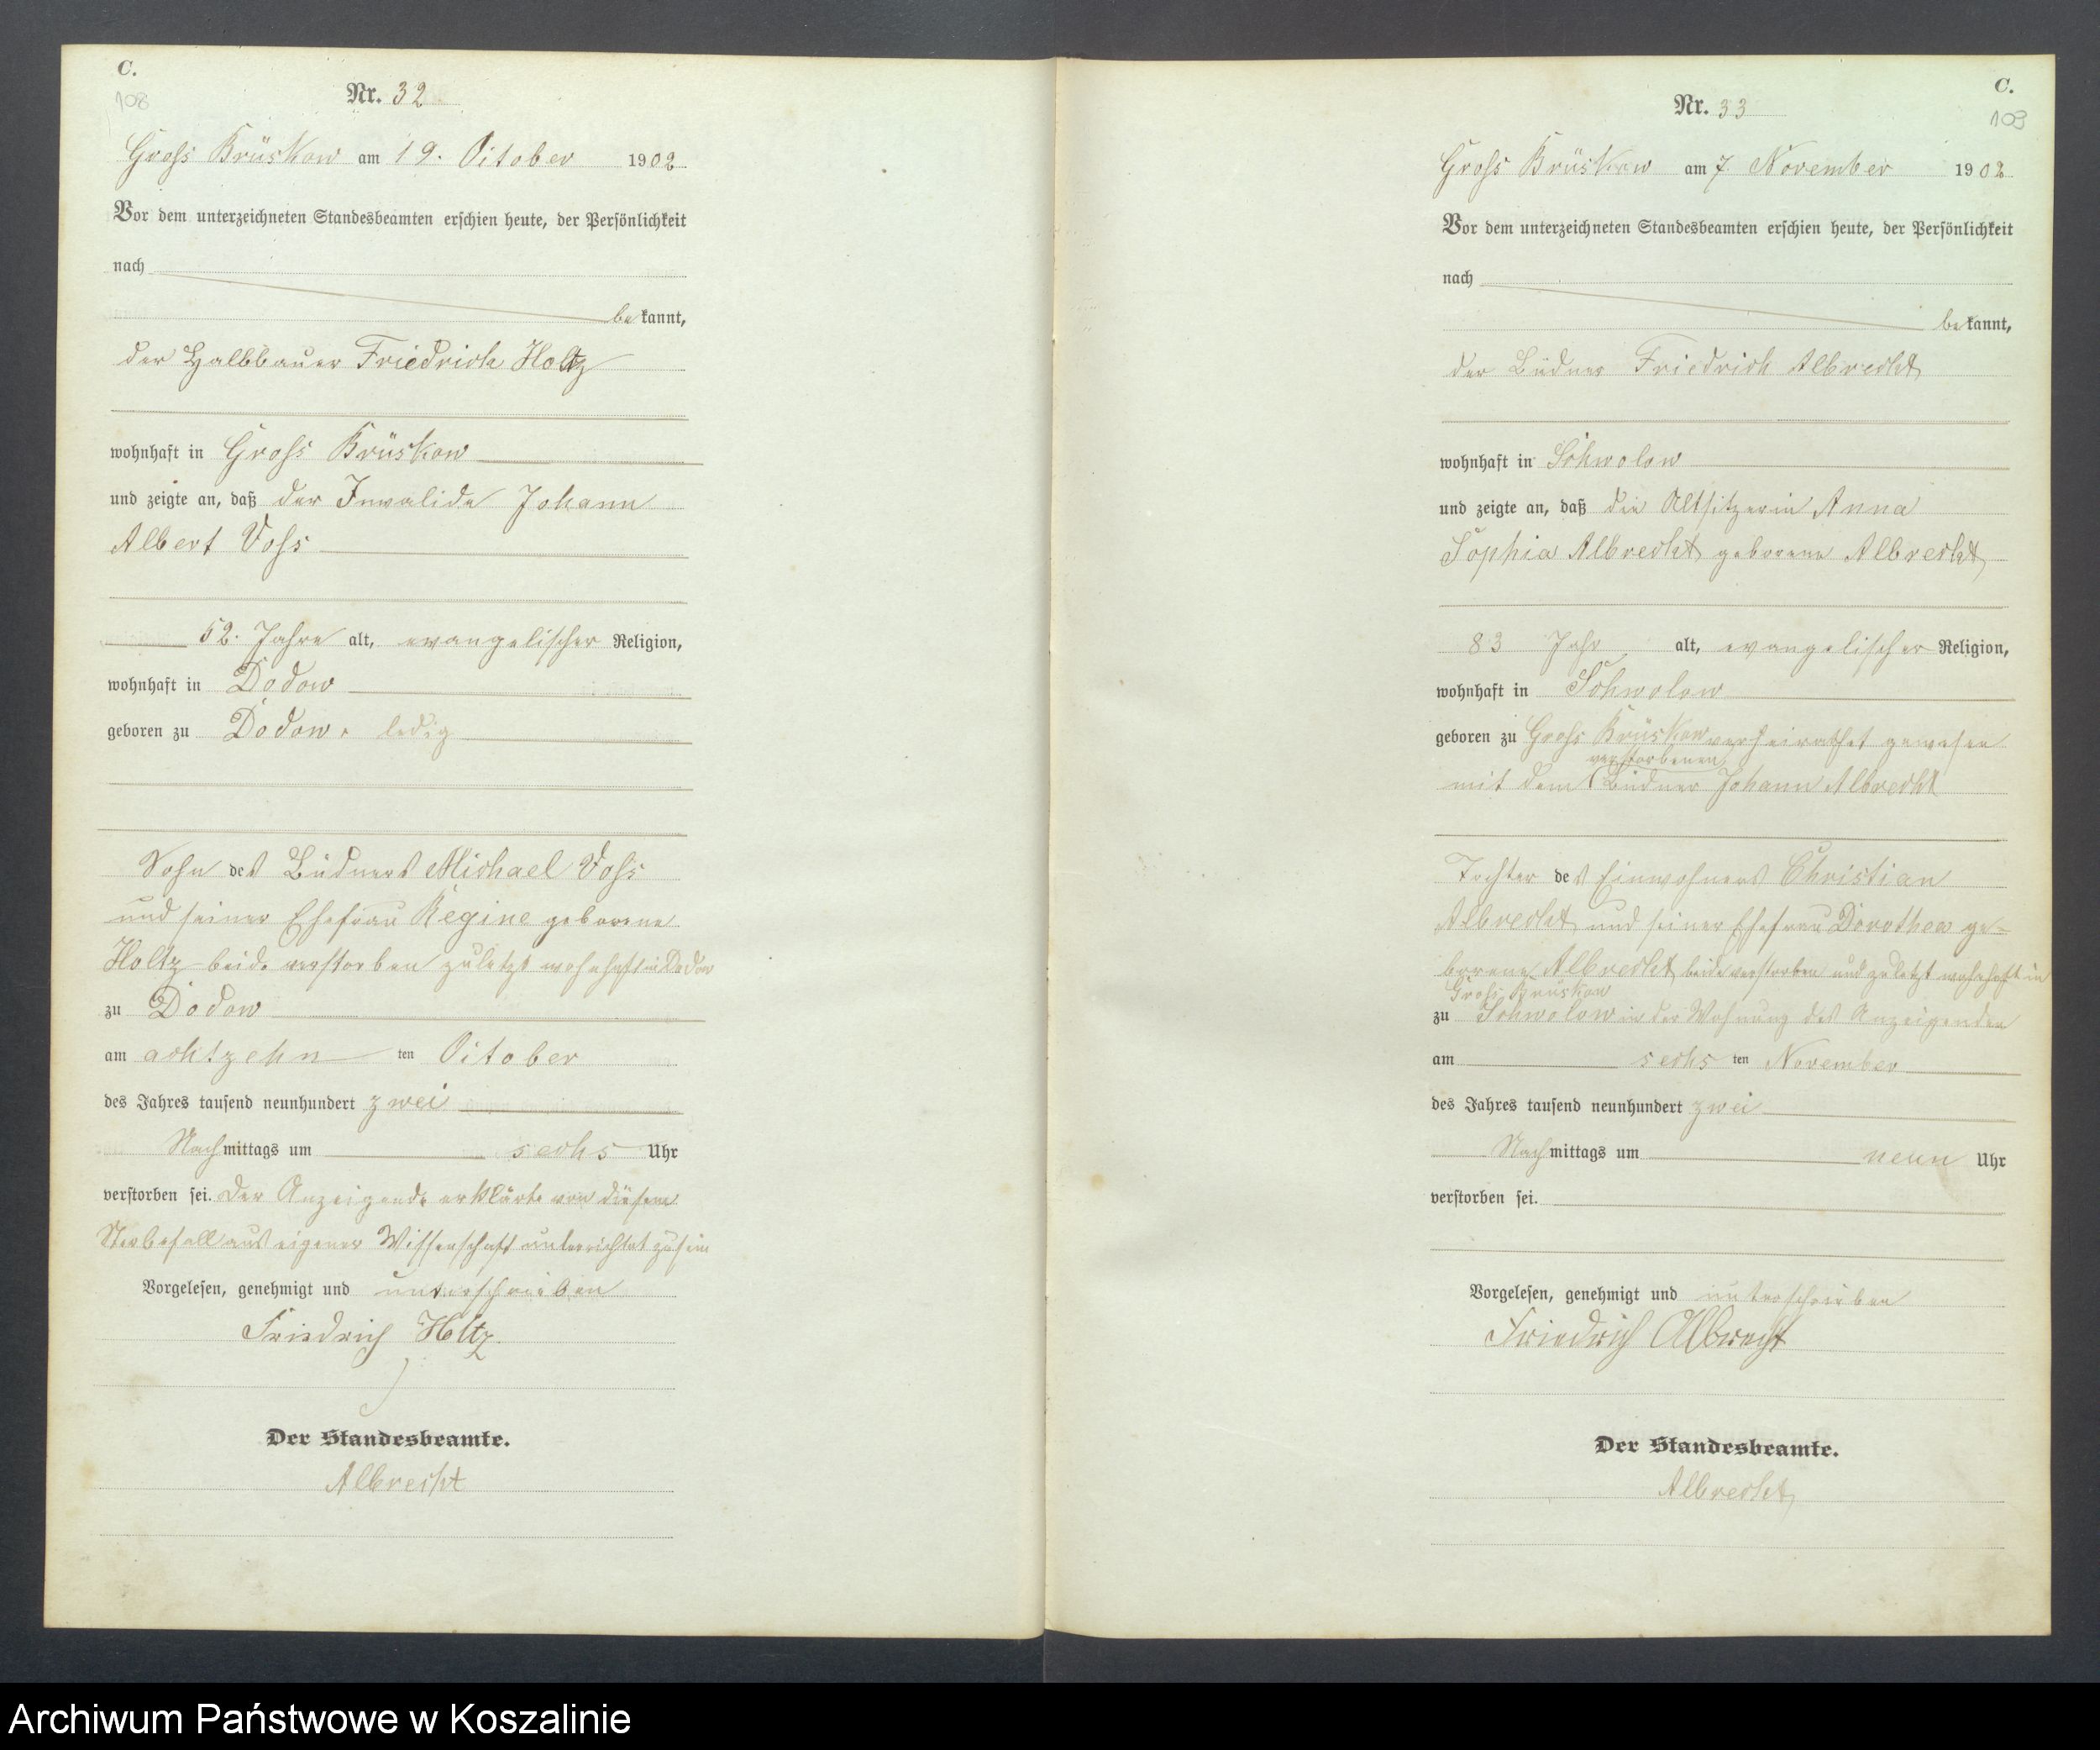 C.
108
Nr. 32
Gross Krüskow am 19. October 1902
Vor dem unterzeichneten Standesbeamten erschien heute, der Persönlichkeit
nach
be kannt,
der Halbbauer Friedrich Holtz
wohnhaft in Gross Krüskow
und zeigte an, daß der Invalide Johann
Albert Voss
52. Jahre alt, evangelischer Religion,
wohnhaft in Dodow
geboren zu Dodow, ledig
Sohn des Büdners Michael Voss
und seiner Ehefrau Regine geborene
Holtz - beide verstorben zuletzt wohnhaft in Dodow
zu Dodow
am achtzehn ten October
des Jahres tausend neunhundert zwei
Nachmittags um sechs Uhr
verstorben sei. Der Anzeigende erklärte von diesem
Sterbefall aus eigener Wissenschaft unterrichtet zu sein
Vorgelesen, genehmigt und unterschrieben
Friedrich Holtz
Der Standesbeamte.
Albrecht
C.
109
Nr. 33
Gross Krüskow am 7. November 1902
Vor dem unterzeichneten Standesbeamten erschien heute, der Persönlichkeit
nach
be kannt,
der Büdner Friedrich Albrecht
wohnhaft in Schwolow
und zeigte an, daß die Altsitzerin Anna
Sophia Albrecht geborene Albrecht
83 Jahr alt, evangelischer Religion,
wohnhaft in Schwolow
geboren zu Gross Krüskow verheirathet gewesen
verstorbenen
mit dem Büdner Johann Albrecht
Tochter des Einwohners Christian
Albrecht und seiner Ehefrau Dorothea ge-
borene Albrecht beide verstorben und zuletzt wohnhaft in
Gross Krüskow
zu Schwolow in der Wohnung des Anzeigenden
am sechs ten November
des Jahres tausend neunhundert zwei
Nachmittags um neun Uhr
verstorben sei.
Vorgelesen, genehmigt und unterschrieben
Friedrich Albrecht
Der Standesbeamte.
Albrecht
Archiwum Państwowe w Koszalinie